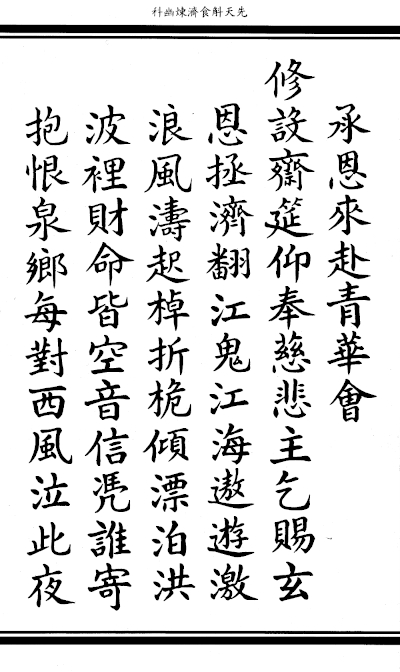 先天斛食濟煉幽科
承恩來赴青華會
修設齋筵仰奉慈悲主乞賜玄
恩拯濟翻江鬼江海遨遊激
浪風濤起棹折桅傾漂泊洪
波裡財命皆空音信凴誰寄
抱恨泉鄉每對西風泣此夜